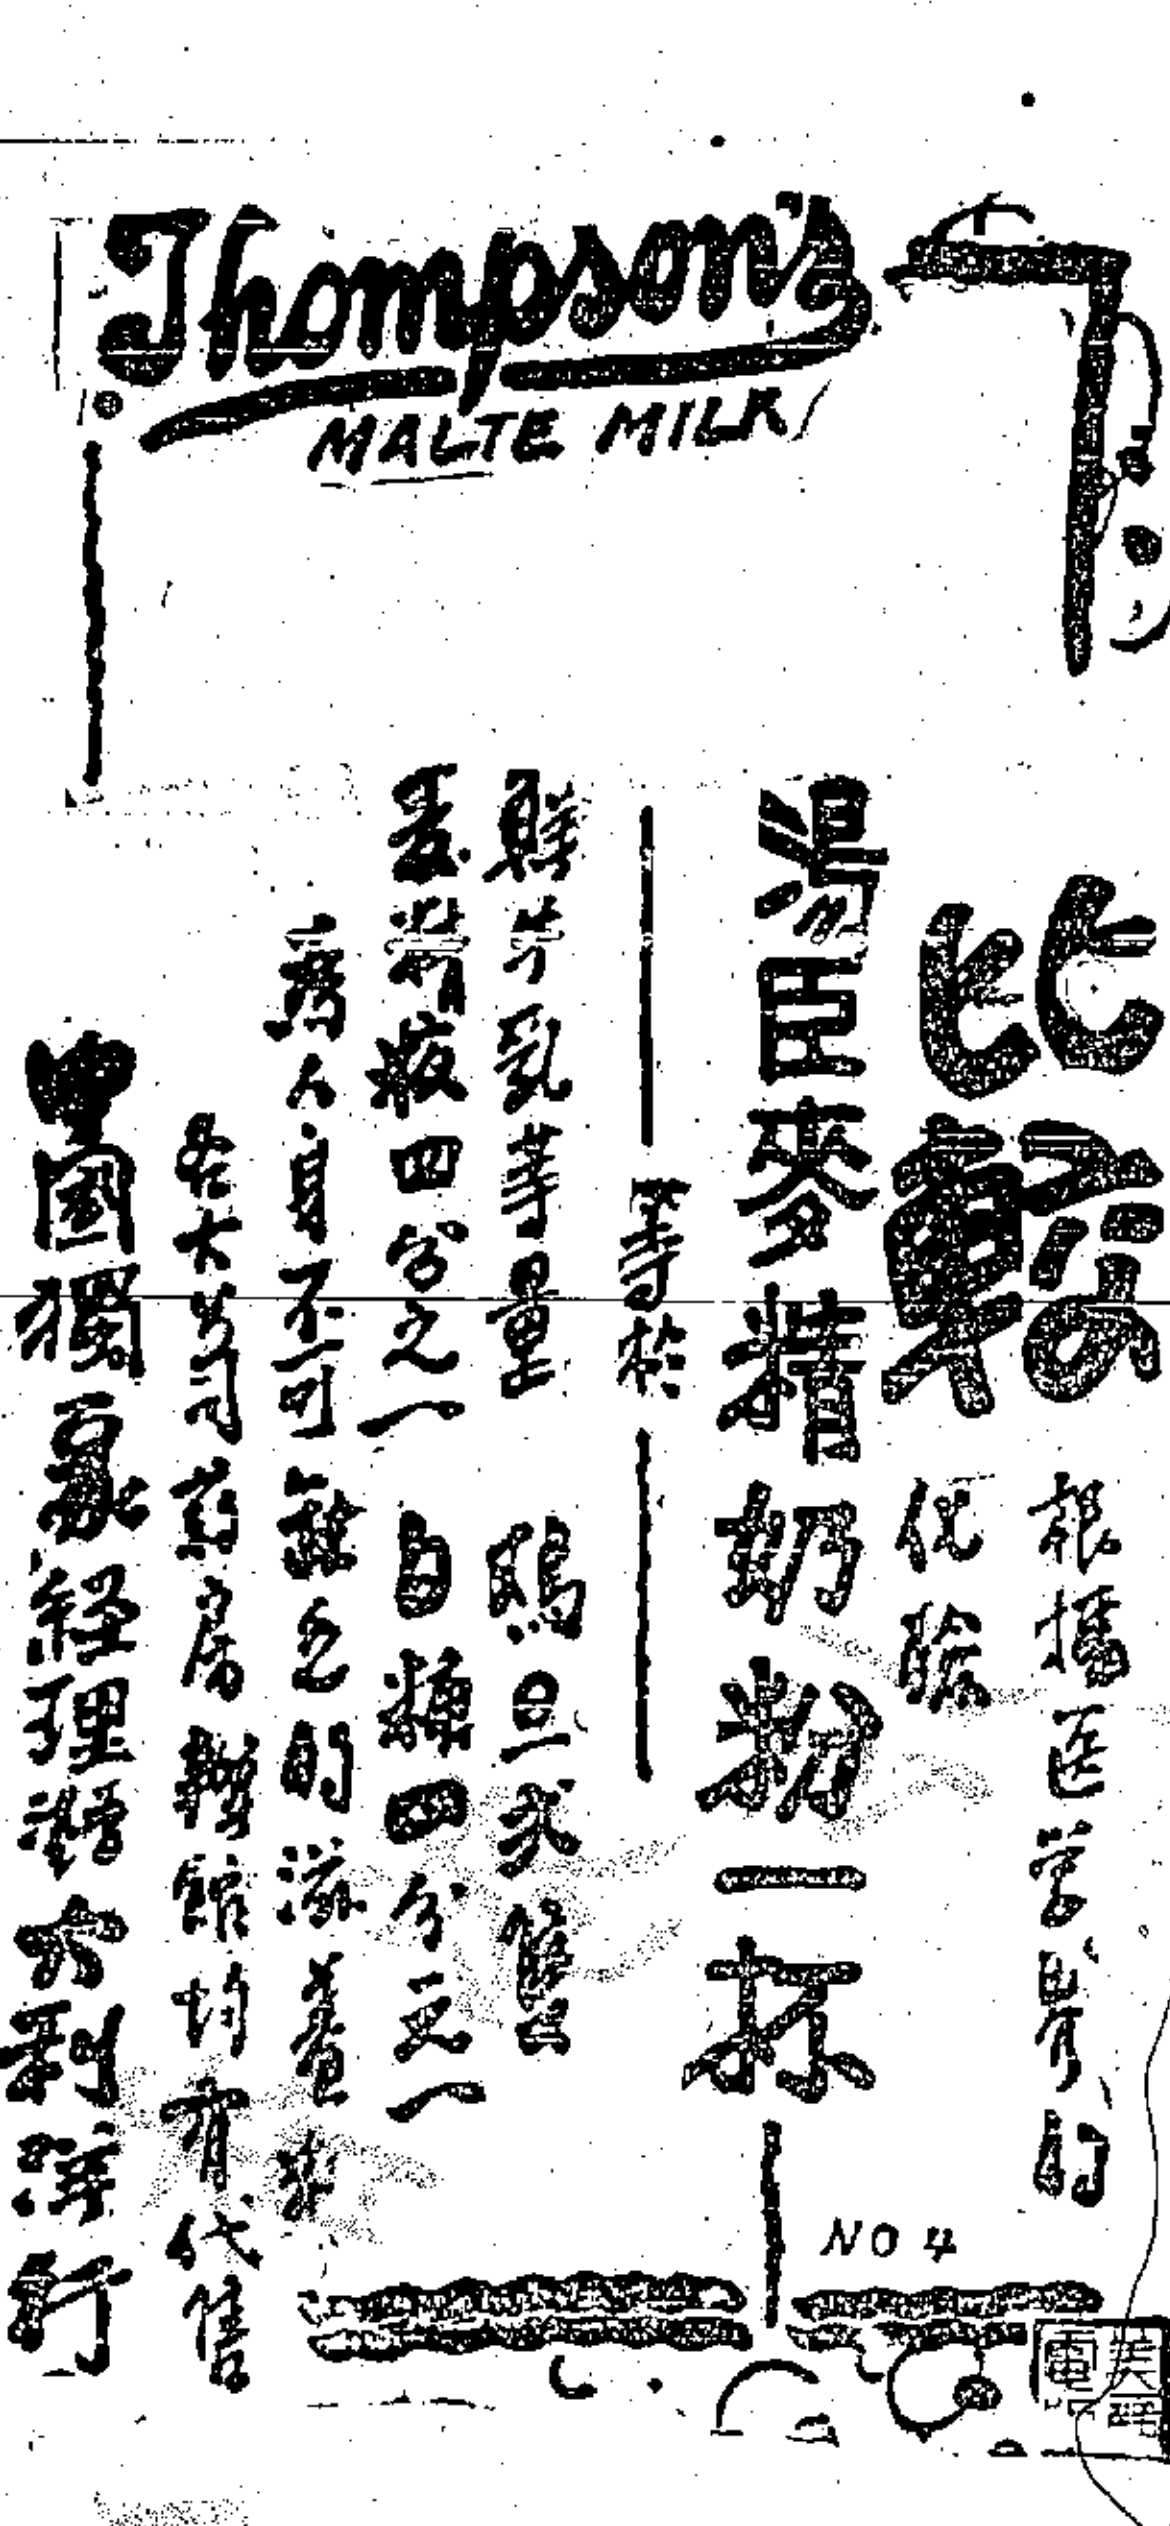 Thompson's
MALTE MILK
比較 根據医学界的
比較 化驗
湯臣麥精奶粉一杯
等於
鮮牛乳等量 鸡旦弍隻
麦精液四分之一 自糠四分之一
為人身不可缺乏的滋養素
各大公司药房辦館均有代售
中國獨家経理 大利洋行
NO 4